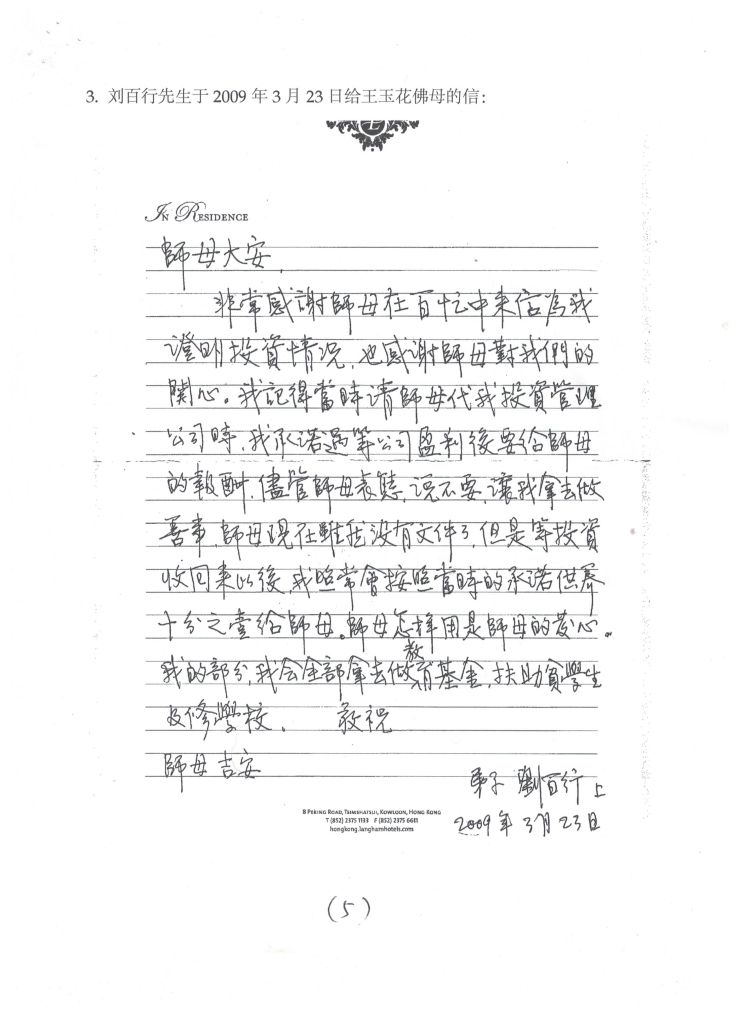 3. 刘百行先生于 2009 年 3 月 23 日给王玉花佛母的信:
IN RESIDENCE
師母大安,
非常感謝師母在百忙中来信為我
證明投資情况,也感谢師母對我們的
関心。我記得當時请師母代我投資管理
公司時,我承诺過等公司盈利後要给師母
的報酬,儘管師母表態,说不要,讓我拿去做
善事,師母現在雖然没有文件了,但是等投資
收回来以後,我照常會按照當時的承诺供养
十分之壹给師母。師母怎样用是師母的发心。
我的部分,我会全部拿去做教育基金,扶助貧學生
及修學校。 敬祝
師母吉安
弟子 劉百行 上
2009年3月23日
8 PEKING ROAD, TSIMSHATSUI, KOWLOON, HONG KONG
T (852) 2375 1133 F (852) 2375 6611
hongkong.langhamhotels.com
(5)